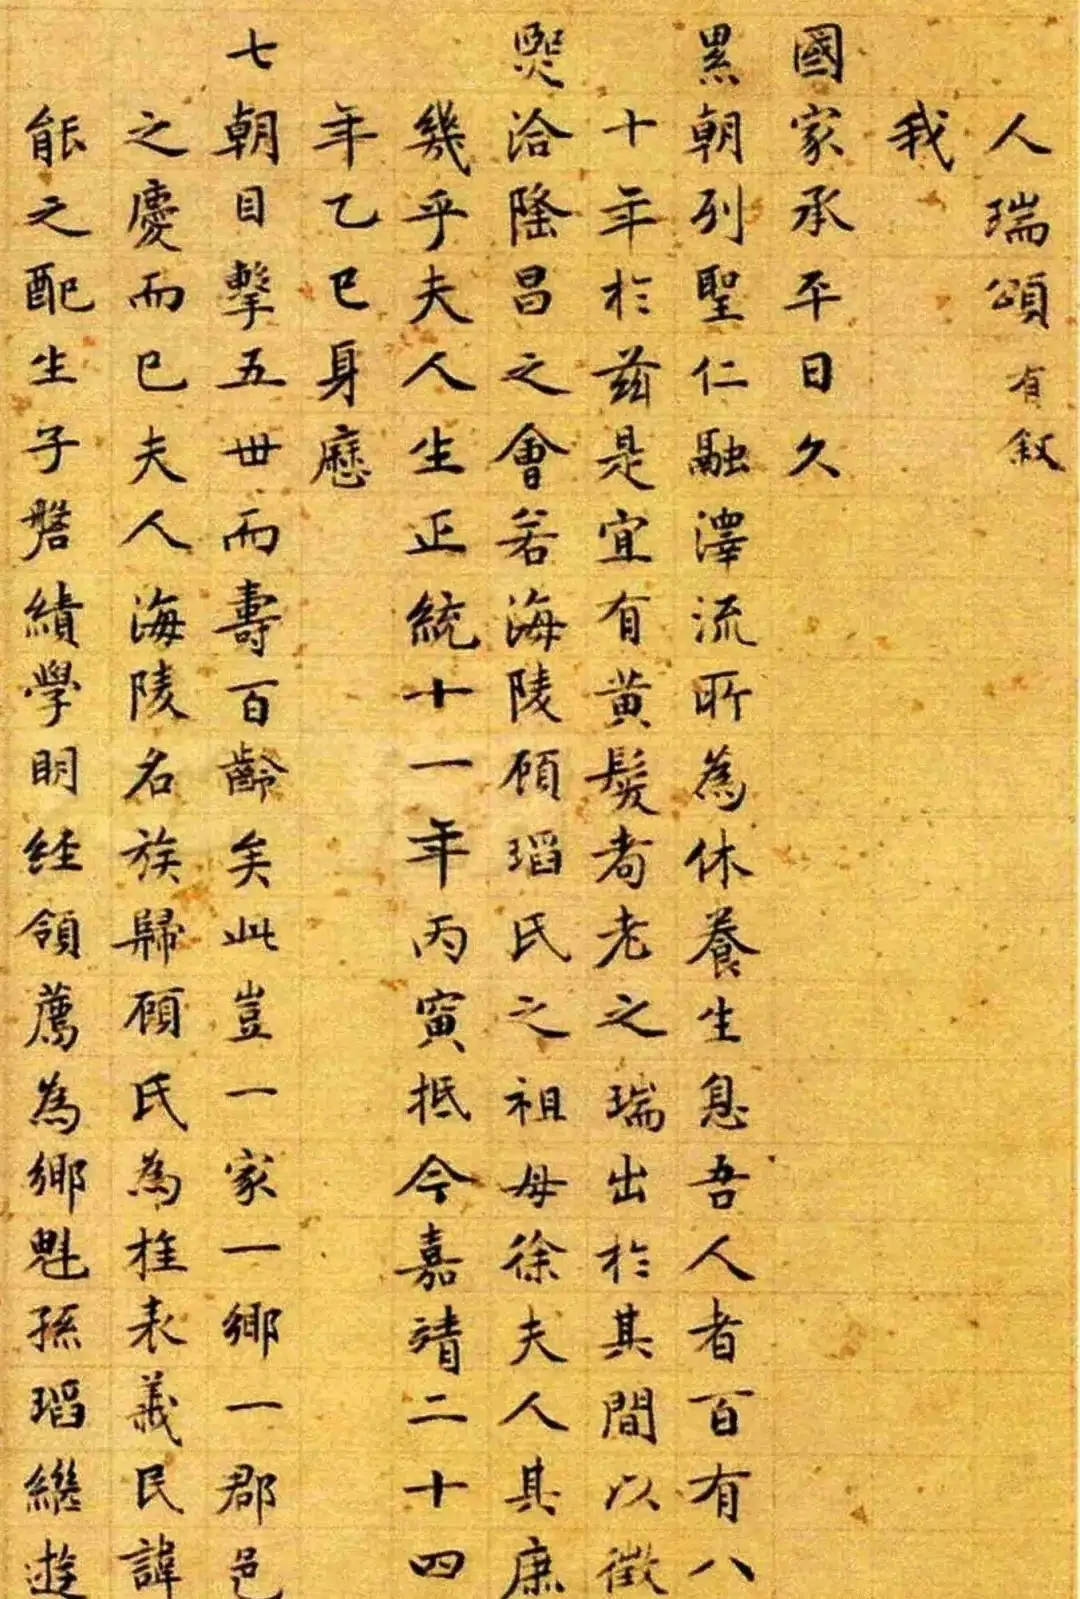 人瑞頌有敘
我
國家承平日久
累朝列聖仁融澤流所為休養生息吾人者百有八
十年於茲是宜有黃髮耇老之瑞出於其間以徵
熙洽隆昌之會若海陵顧瑫氏之祖母徐夫人其庶
幾乎夫人生正統十一年丙寅抵今嘉靖二十四
年乙巳身歷
七朝目擊五世而壽百齡矣此豈一家一鄉一郡邑
之慶而已夫人海陵名族歸顧氏為柱表義民諱
能之配生子磐績學明經領薦為鄉魁孫瑫繼遊